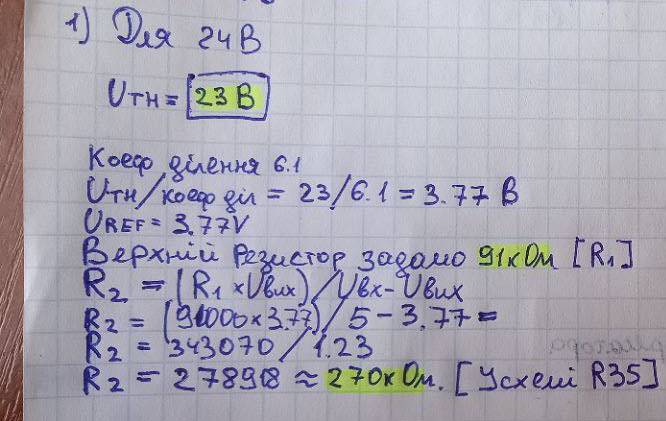 1) Для 24В
Uтн = 23 В
Коеф ділення 6.1
Uтн/коеф діл = 23/6.1 = 3.77 В
UREF = 3.77V
Верхній резистор задамо 91кОм [R1]
R2 = (R1 × Uвих) / Uвх - Uвих
R2 = (91000 × 3.77) / 5 - 3.77 =
R2 = 343070 / 1.23
R2 = 278918 ≈ 270кОм. [У схемі R35]